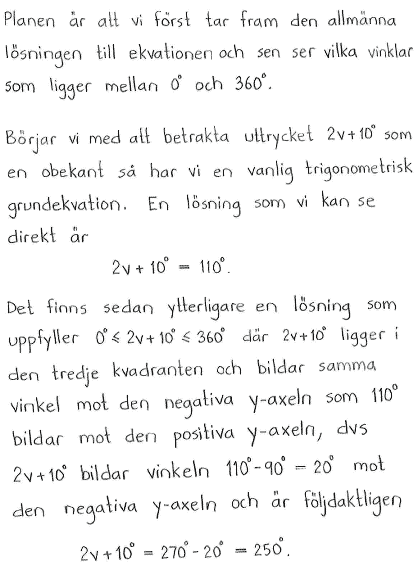 Planen är att vi först tar fram den allmänna
lösningen till ekvationen och sen ser vilka vinklar
som ligger mellan 0° och 360°.
Börjar vi med att betrakta uttrycket 2v+10° som
en obekant så har vi en vanlig trigonometrisk
grundekvation. En lösning som vi kan se
direkt är
2v + 10° = 110°.
Det finns sedan ytterligare en lösning som
uppfyller 0° ≤ 2v+10° ≤ 360° där 2v+10° ligger i
den tredje kvadranten och bildar samma
vinkel mot den negativa y-axeln som 110°
bildar mot den positiva y-axeln, dvs
2v+10° bildar vinkeln 110°-90° = 20° mot
den negativa y-axeln och är följdaktligen
2v+10° = 270°-20° = 250°.